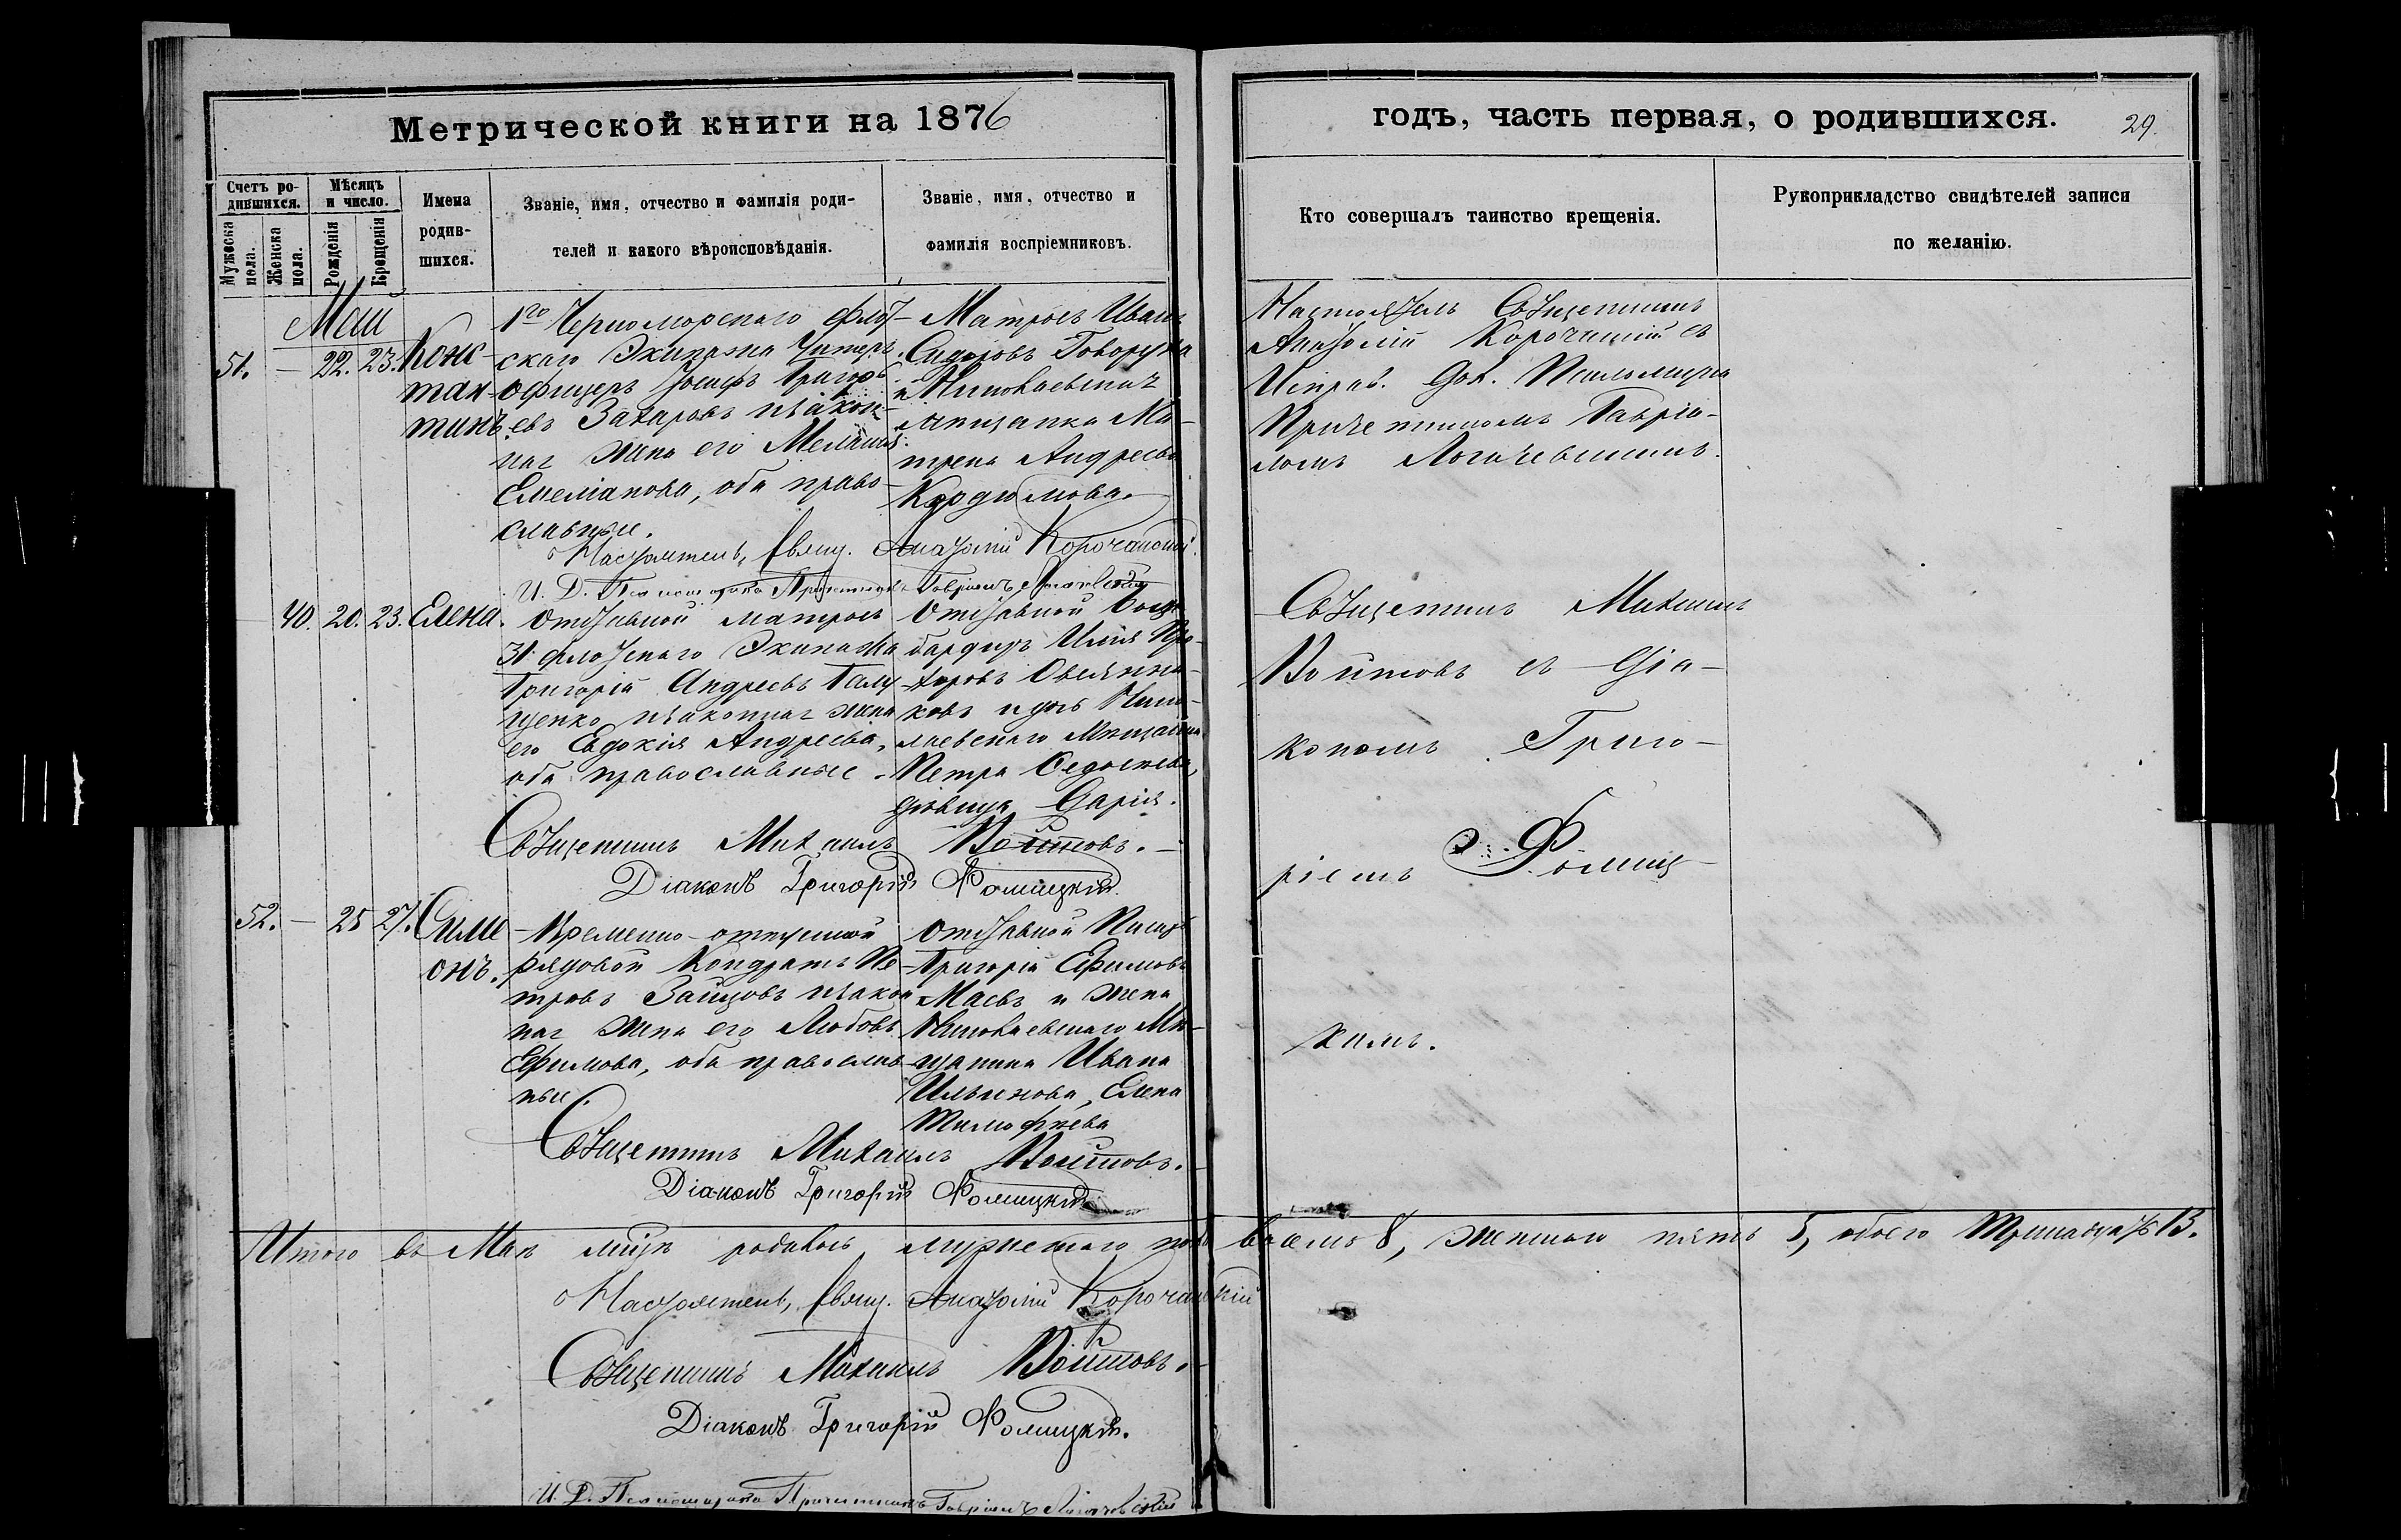 Метрической книги на 1876
годъ, часть первая, о родившихся.
29.
Счетъ родившихся.
Мѣсяцъ и число.
Мужеска пола.
Женска пола.
Рожденія
Крещенія
Имена родившихся.
Званіе, имя, отчество и фамилія родителей и какого вѣроисповѣданія.
Званіе, имя, отчество и фамилія воспріемниковъ.
Кто совершалъ таинство крещенія.
Рукоприкладство свидѣтелей записи по желанію.
Май
51. — 22. 23. Констан-тинъ.
1го Черноморскаго Флот-
скаго Экипажа Унтеръ.
офицеръ Іосифъ Григорь-
евъ Захаровъ и закон-
ная жена его Меланія
Емеліанова, оба право-
славные.
Матросъ Иванъ
Сидоровъ
и Николаевская
мѣщанка Ма-
трена Андреева
Кардюмова.
Настоятель Священникъ
Анатолій Корочанскій съ
Исправ. Дол. Псаломщика
Причетникомъ Гавріи-
ломъ Логачевскимъ.
Настоятель, Свящ. Анатолій Корочанскій.
И. Д. Псаломщика Причетникъ Гавріилъ Логачевскій
40. 20. 23. Елена.
Отставной матросъ
31 флотскаго Экипажа
Григорій Андреевъ Галу-
щенко и законная жена
его Евдокія Андреева,
оба православные.
Отставной Бом-
бардиръ Илія Про-
хоровъ Овсянни-
ковъ и дочь Нико-
лаевскаго Мѣщанина
Петра
дѣвица Дарія.
Священникъ Михаилъ
Войтовъ съ Діа-
кономъ Григо-
ріемъ Фомиц-
кимъ.
Священникъ Михаилъ Войтовъ.
Діаконъ Григорій Фомицкій.
52. — 25 27. Симе-онъ.
Временно-отпускной
рядовой Кондратъ Пе-
тровъ Зайцовъ и закон
ная жена его Любовь
Ефимова, оба православ-
ные.
Отставной Писарь
Григорій Ефимовъ
Маевъ и жена
Николаевскаго Мѣ-
щанина Ивана
Ильинова, Елена
Тимофѣева
Священникъ Михаилъ Войтовъ.
Діаконъ Григорій Фомицкій
Итого въ Маѣ мцѣ родилось мужескаго пола восемь 8, женскаго пять 5, обоего тринадцать 13.
Настоятель, Свящ. Анатолій Корочанскій
Священникъ Михаилъ Войтовъ.
Діаконъ Григорій Фомицкій.
И. Д. Псаломщика Причетникъ Гавріилъ Логачевскій